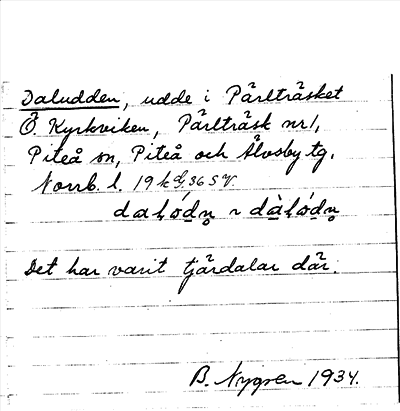 Daludden, udde i Pärlträsket
Ö. Kyrkviken, Pärlträsk nr 1,
Piteå sn, Piteå och Älvsby tg.
Norrb. l. 19 k d, 36 S V.
dalọ́dn̥ ~ dàlọ́dn̥
Det har varit tjärdalar där.
B. Nygren 1934.